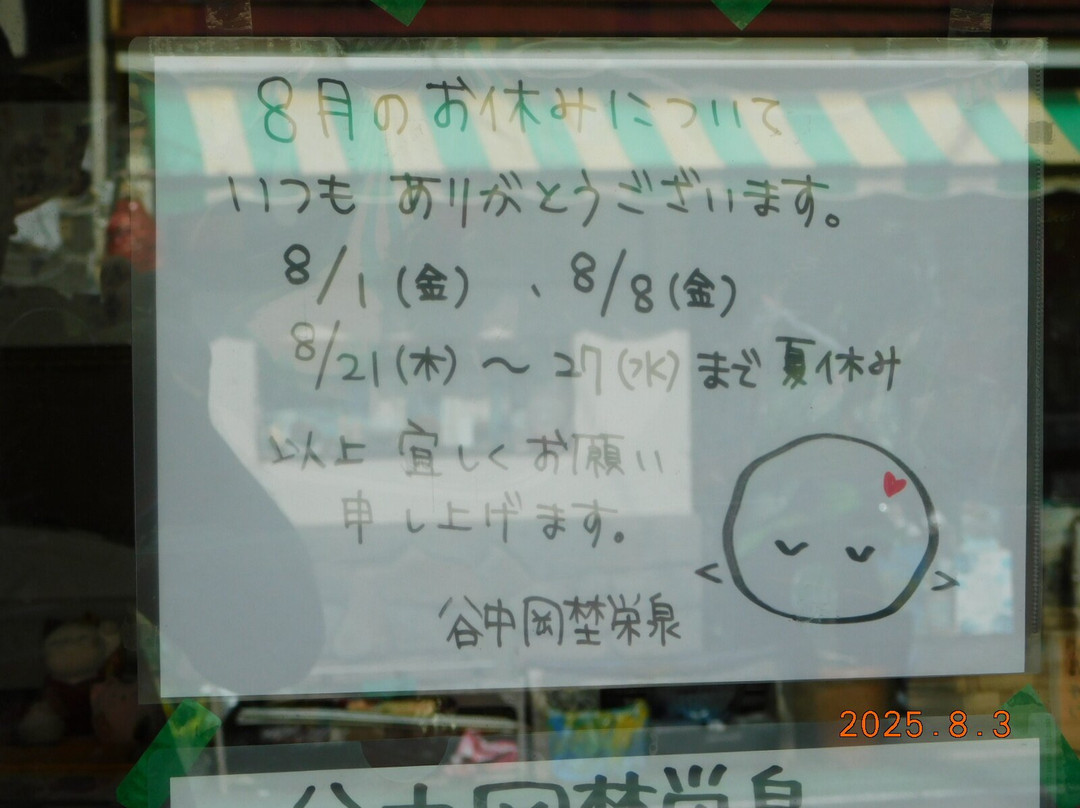 8月のお休みについて
いつも ありがとうございます。
8/1(金)、8/8(金)
8/21(木)～27(水)まで夏休み
以上 宜しくお願い
申し上げます。
谷中岡埜栄泉
2025.8.3
谷中岡埜栄泉